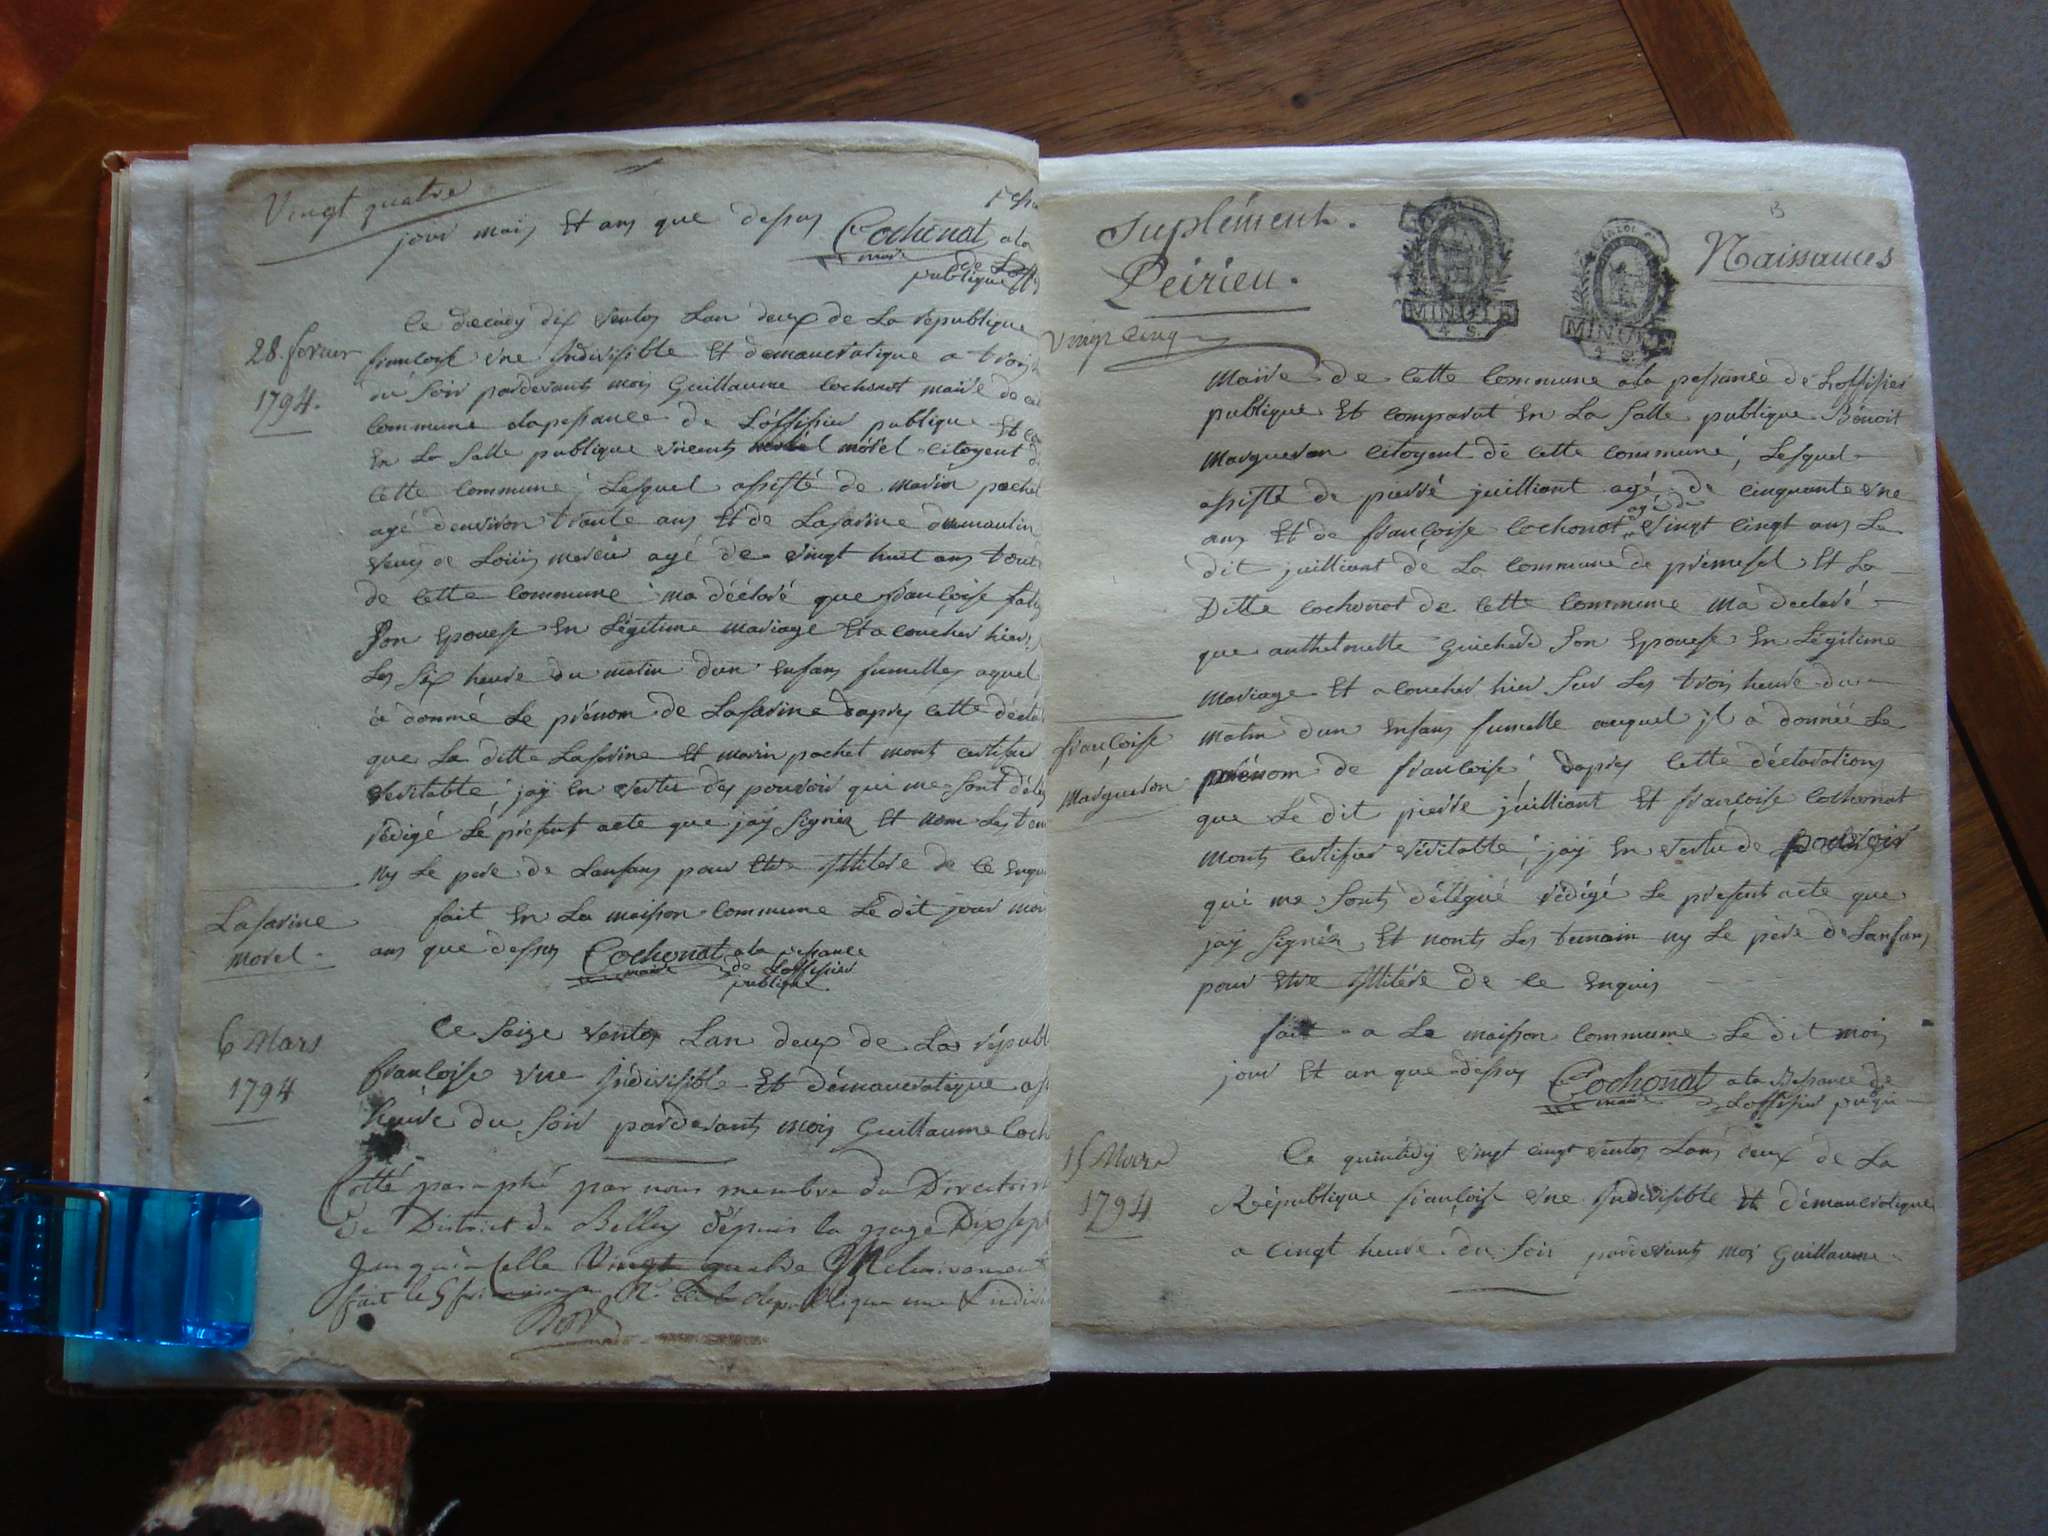 Vingt quatre
jour mois Et ans que dessus Cochonat a la
maire
publique
28. fevrier
1794.
Ce decady dix ventos Lan deux de La republique
francoise vne Indivisible Et démaucratique a trois
du soir pardevant mois Guillaume Cochonat maire de
commune alapessance de Loffisier publique Et
En La Salle publique morel citoyent
cette commune, Lesquel assisté de marin pochet
agé denviron trante ans Et de Lasarine dumaulin
veuv de Louis agé de vingt huit ans tout
de cette commune ma décléré que francoise
Son Epousse En Légitime mariage Et a coucher hier
Les Six heure du matin dun enfans fumelles aquel
a donné Le prénom de Lasarine dapres cette
que La ditte Lasarine Et marin pochet mont certifier
veritable, jaÿ En vertu des pouvoir qui me sont
rédigé Le present acte que jaÿ Signér Et nom Les
ny Le pere de Lanfans pour Etre Illitere de Ce
fait En La maison commune Le dit jour
Lasarine
morel.
ans que dessus Cochonat a la pessance
maire de Loffisier
publique
6 Mars
1794
Ce Saize ventos Lan deux de La républ
francoise vne Indivisible Et démaucratique
heure du Soir pardevant mois Guillaume
Cotté paraphé par nous membre du Directoire
du District de Belley dépuis la page Dixsept
Jusquà celle Vingt quatre
fait le 5 frimaire de la Republique une & indivi
13
Suplément.
Peirieu.
MINUTE
4 S.
MINUTE
4 S.
Naissances
vingt Cinq
Maire de cette commune a la pessance de Loffisier
publique Et comparut En La Salle publique Bénoit
Margueron citoyent de cette commune, Lesquel
assisté de pierre juilliant agé de cinquante vne
ans Et de francoise Cochonat agé de vingt cinqt ans Le
dit juilliant de La commune de prémesel Et La
Ditte Cochonat de cette commune ma declaré
que anthelmette Guicherd Son Epousse En Légitime
Mariage Et a coucher hier Sur Les trois heure du
matin dun enfans fumelle auquel jl a donnéé Le
francoise
Margueron
prénom de francoise, dapres cette déclarations
que Le dit pierre juilliant Et francoise Cochonat
monts certifier véritable, jaÿ En vertu de pouvoir
qui me Sonts délégué rédigé Le present acte que
jaÿ Signér Et nonts Les temoin ny Le père de Lanfans
pour Etre Illitére de ce enquis
fait a La maison commune Le dit mois
jour Et an que dessus Cochonat a la pessance de
maire Loffisier
15 Mars
1794
Ce quintidy vingt cinqt ventos Lans deux de La
République francoise vne Indivisible Et démaucratique
a cinqt heure du Soir pardevants mois Guillaume